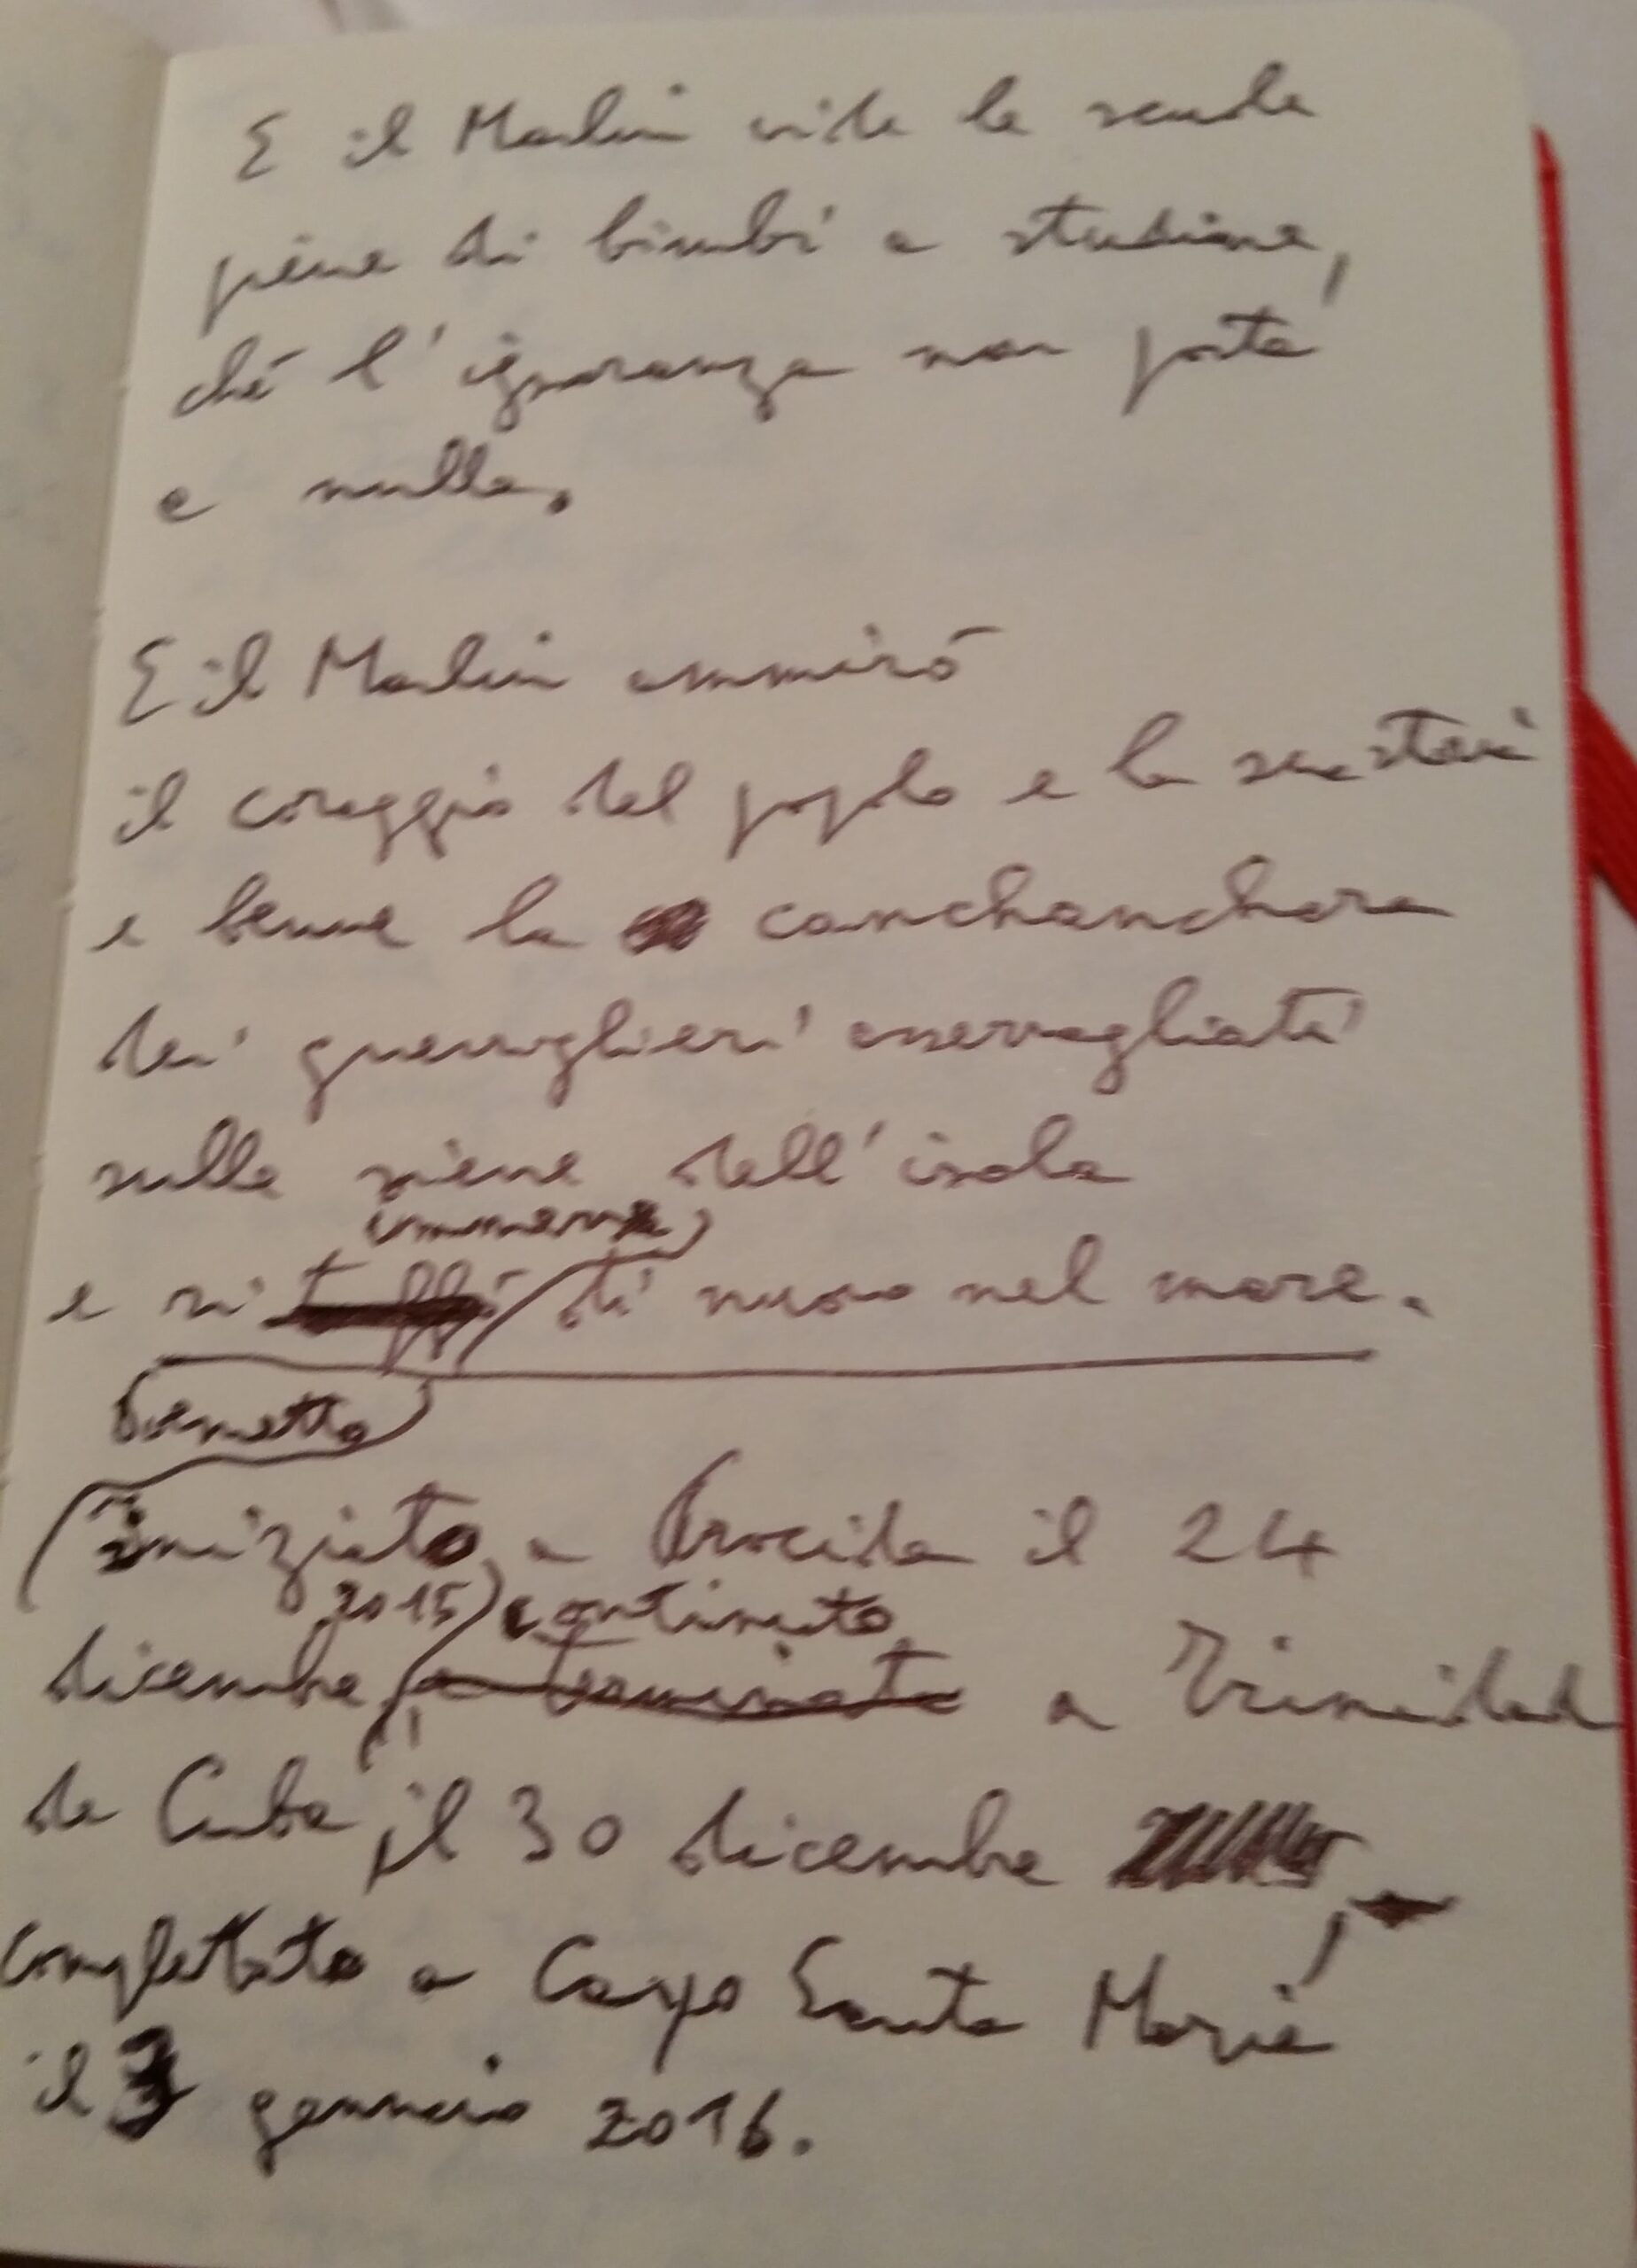 E il Marlin vide le scuole
piene di bimbi a studiare,
ché l'ignoranza non porta
a nulla.
E il Marlin ammirò
il coraggio del popolo e la
e bevve la canchanchara
dei guerriglieri asserragliati
sulle sierre dell'isola
immerse
e si tuffò di nuovo nel mare.
Poemetto
iniziato a Procida il 24
2015 continuato
dicembre e terminato a Trinidad
de Cuba, il 30 dicembre
completato a Cayo Santa Maria
il gennaio 2016.